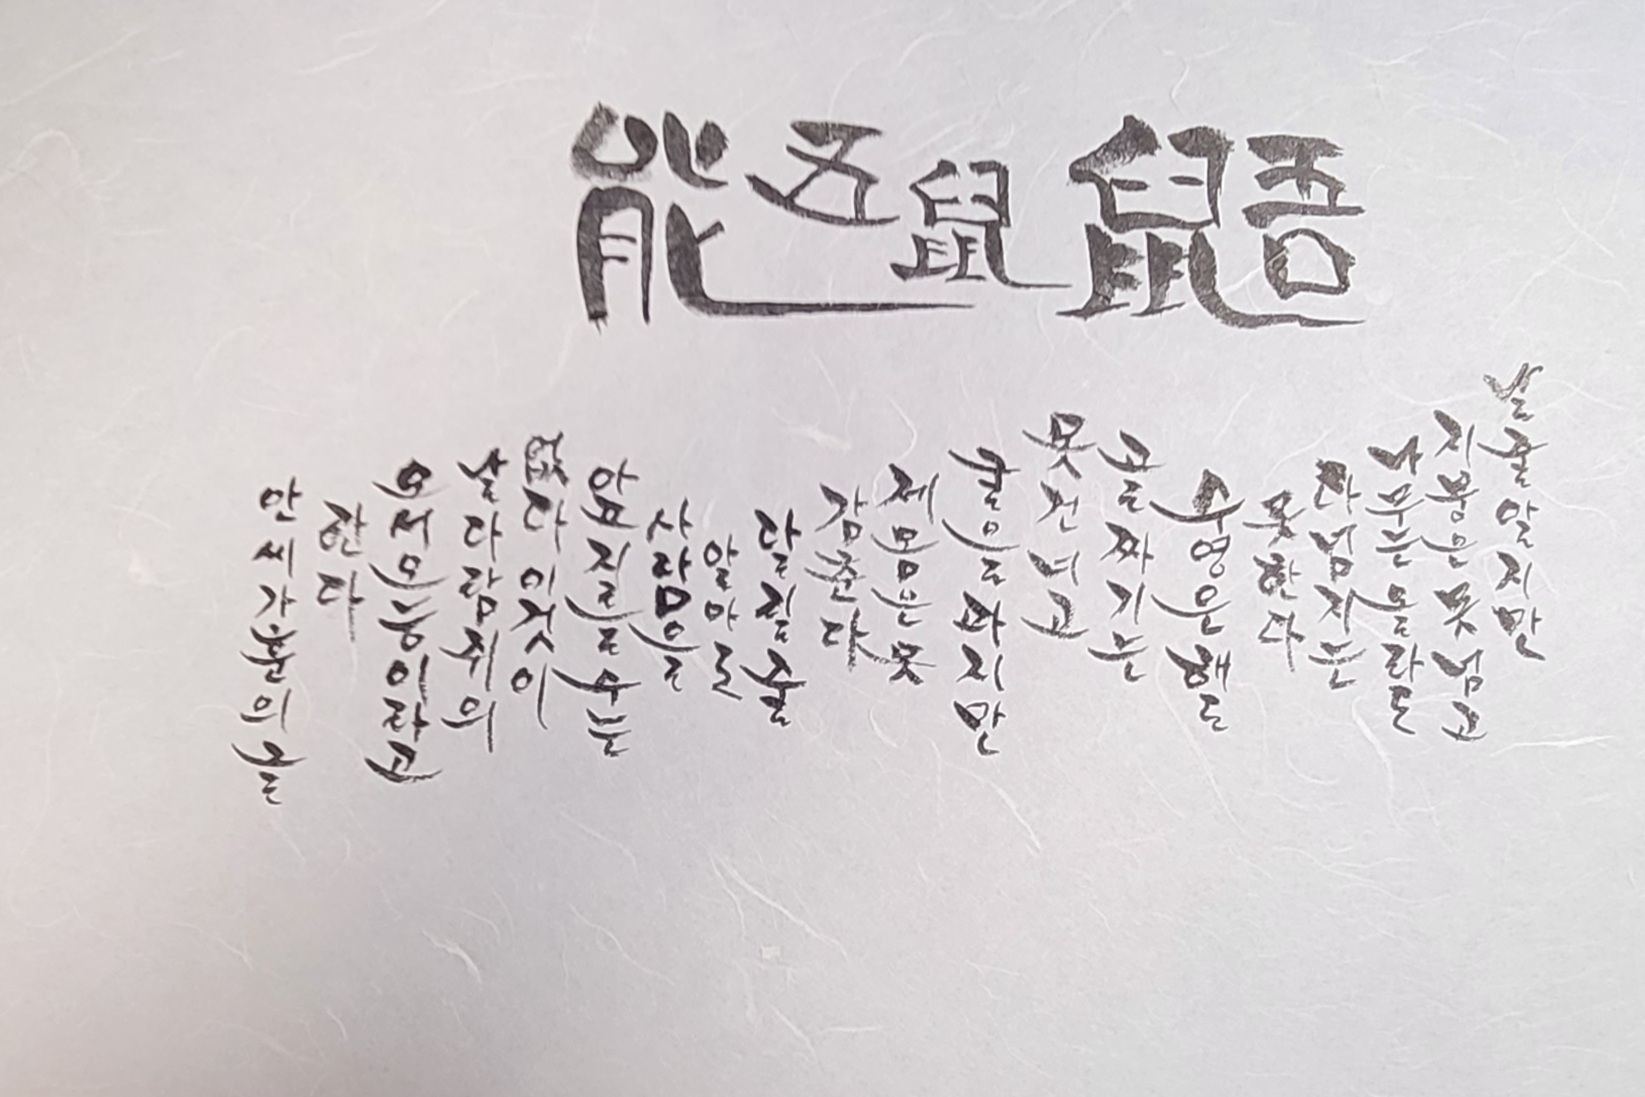 鼯鼠五能
날줄알지만
지붕은못넘고
나무는올라도
타넘지는
못한다
수영은해도
골짜기는
못건너고
굴을파지만
제몸은못
감춘다
달릴줄
알아도
사람을
앞지를수는
없다이것이
날다람쥐의
오서오능이라고
한다
안씨가훈의글